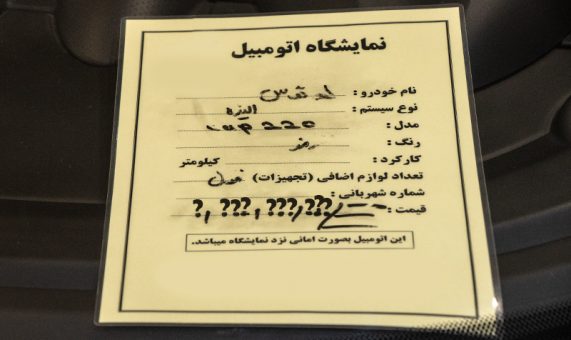 نمایشگاه اتومبیل
نام خودرو : لوتوس
نوع سیستم : الیزه
مدل : cup 220
رنگ :
کارکرد : کیلومتر
تعداد لوازم اضافی (تجهیزات) فول
شماره شهربانی :
قیمت : ?,???,???,???
این اتومبیل بصورت امانی نزد نمایشگاه میباشد.